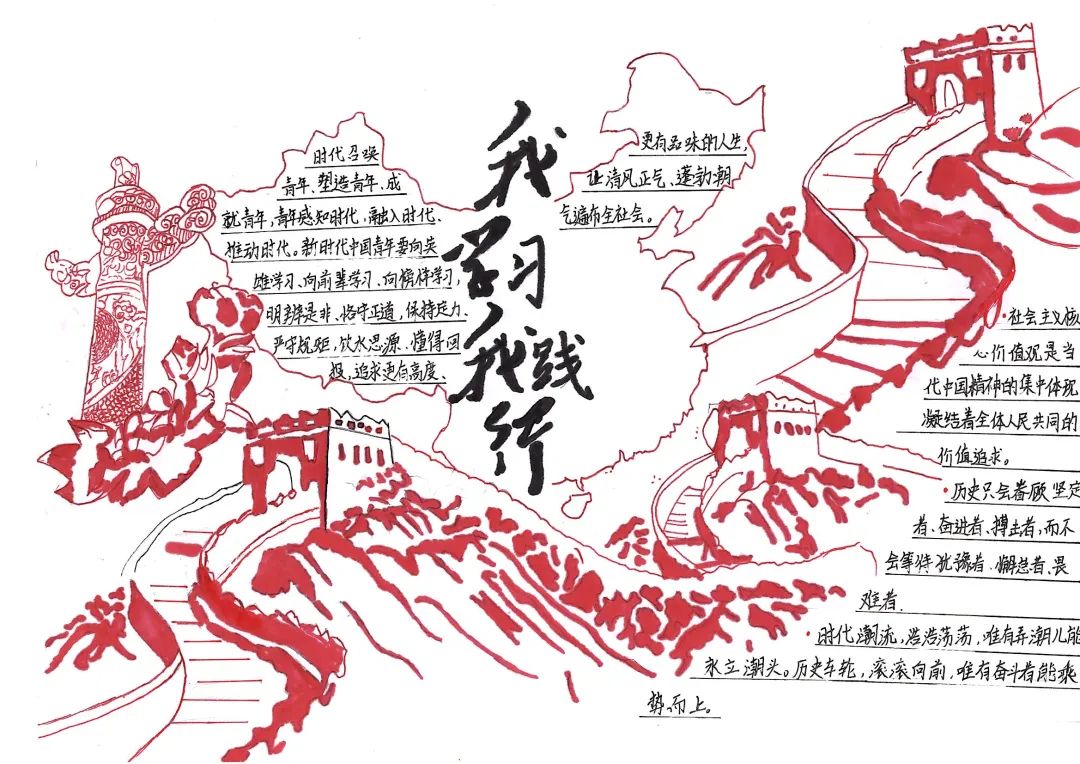 我
学习
我践
行
时代召唤
青年、塑造青年、成
就青年,青年感知时代、融入时代、
推动时代。新时代中国青年要向英
雄学习、向前辈学习、向榜样学习,
明辨是非、恪守正道,保持定力、
严守规矩,饮水思源、懂得回
报,追求更有高度、
更有品味的人生,
让清风正气、蓬勃朝
气遍布全社会。
·社会主义核
心价值观是当
代中国精神的集中体现
凝结着全体人民共同的
价值追求。
·历史只会眷顾坚定
者、奋进者、搏击者,而不
会等待犹豫者、懈怠者、畏
难者.
·时代潮流,浩浩荡荡,唯有弄潮儿能
永立潮头。历史车轮,滚滚向前,唯有奋斗者能乘
势而上。